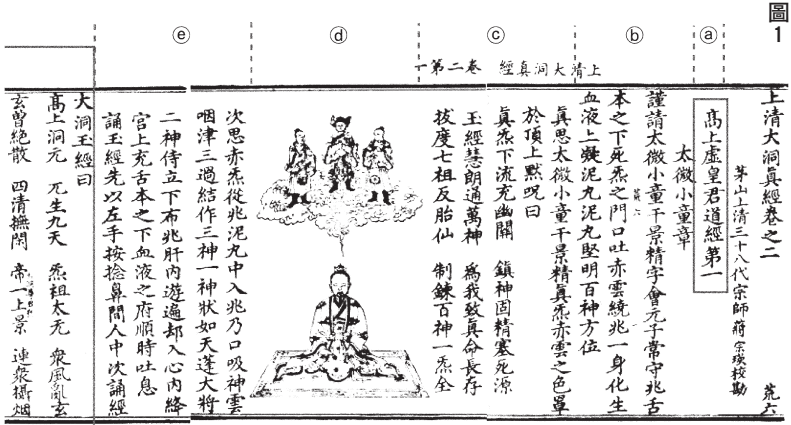 圖1
ⓐ
ⓑ
ⓒ
ⓓ
ⓔ
上清大洞真經 卷二第一
上清大洞真經卷之二 荒六
茅山上清三十八代宗師蔣宗瑛校勘
高上虛皇君道經第一
太微小童章
謹請太微小童干景精字會元子常守兆舌
本之下死炁之門口吐赤雲繞兆一身化生
血液上凝泥丸泥丸堅明百神方位
真思太微小童干景精真炁赤雲之色罩
於頂上默呪曰
真炁下流充幽關 鎮神固精塞死源
玉經慧朗通萬神 為我致真命長存
拔度七祖反胎仙 制鍊百神一炁全
次思赤炁從兆泥丸中入兆乃口吸神雲
咽津三過結作三神一神狀如天蓬大將
二神侍立下布兆肝內遊遍却入心內絳
宮上充舌本之下血液之府順時吐息
誦玉經先以左手按捻鼻間人中次誦經
大洞玉經曰
高上洞元 兀生九天 炁祖太无 衆風亂玄
玄曾絕散 四清撫閑 帝一上景 連衆攝烟